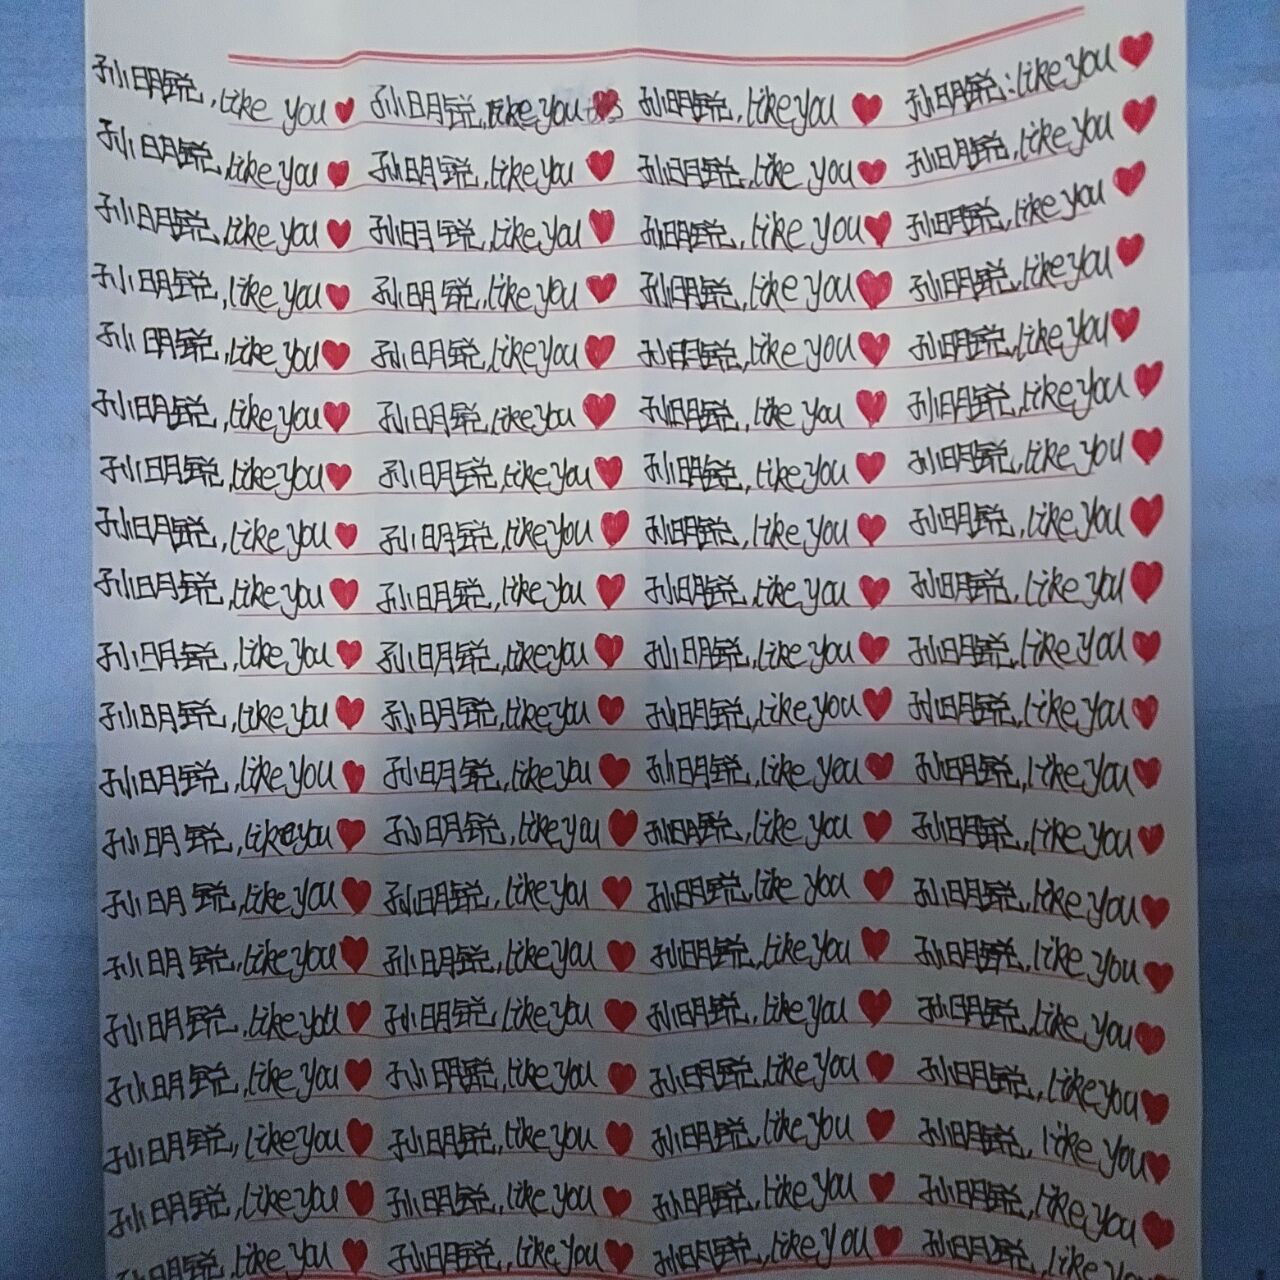 孙明锐,like you♥ 孙明锐,like you♥ 孙明锐,like you♥ 孙明锐:like you♥
孙明锐,like you♥ 孙明锐,like you♥ 孙明锐,like you♥ 孙明锐,like you♥
孙明锐,like you♥ 孙明锐,like you♥ 孙明锐,like you♥ 孙明锐,like you♥
孙明锐,like you♥ 孙明锐,like you♥ 孙明锐,like you♥ 孙明锐,like you♥
孙明锐,like you♥ 孙明锐,like you♥ 孙明锐,like you♥ 孙明锐,like you♥
孙明锐,like you♥ 孙明锐,like you♥ 孙明锐,like you♥ 孙明锐,like you♥
孙明锐,like you♥ 孙明锐,like you♥ 孙明锐,like you♥ 孙明锐,like you♥
孙明锐,like you♥ 孙明锐,like you♥ 孙明锐,like you♥ 孙明锐,like you♥
孙明锐,like you♥ 孙明锐,like you♥ 孙明锐,like you♥ 孙明锐,like you♥
孙明锐,like you♥ 孙明锐,like you♥ 孙明锐,like you♥ 孙明锐,like you♥
孙明锐,like you♥ 孙明锐,like you♥ 孙明锐,like you♥ 孙明锐,like you♥
孙明锐,like you♥ 孙明锐,like you♥ 孙明锐,like you♥ 孙明锐,like you♥
孙明锐,like you♥ 孙明锐,like you♥ 孙明锐,like you♥ 孙明锐,like you♥
孙明锐,like you♥ 孙明锐,like you♥ 孙明锐,like you♥ 孙明锐,like you♥
孙明锐,like you♥ 孙明锐,like you♥ 孙明锐,like you♥ 孙明锐,like you♥
孙明锐,like you♥ 孙明锐,like you♥ 孙明锐,like you♥ 孙明锐,like you♥
孙明锐,like you♥ 孙明锐,like you♥ 孙明锐,like you♥ 孙明锐,like you♥
孙明锐,like you♥ 孙明锐,like you♥ 孙明锐,like you♥ 孙明锐,like you♥
孙明锐,like you♥ 孙明锐,like you♥ 孙明锐,like you♥ 孙明锐,like you♥
孙明锐,like you♥ 孙明锐,like you♥ 孙明锐,like you♥ 孙明锐,like you♥